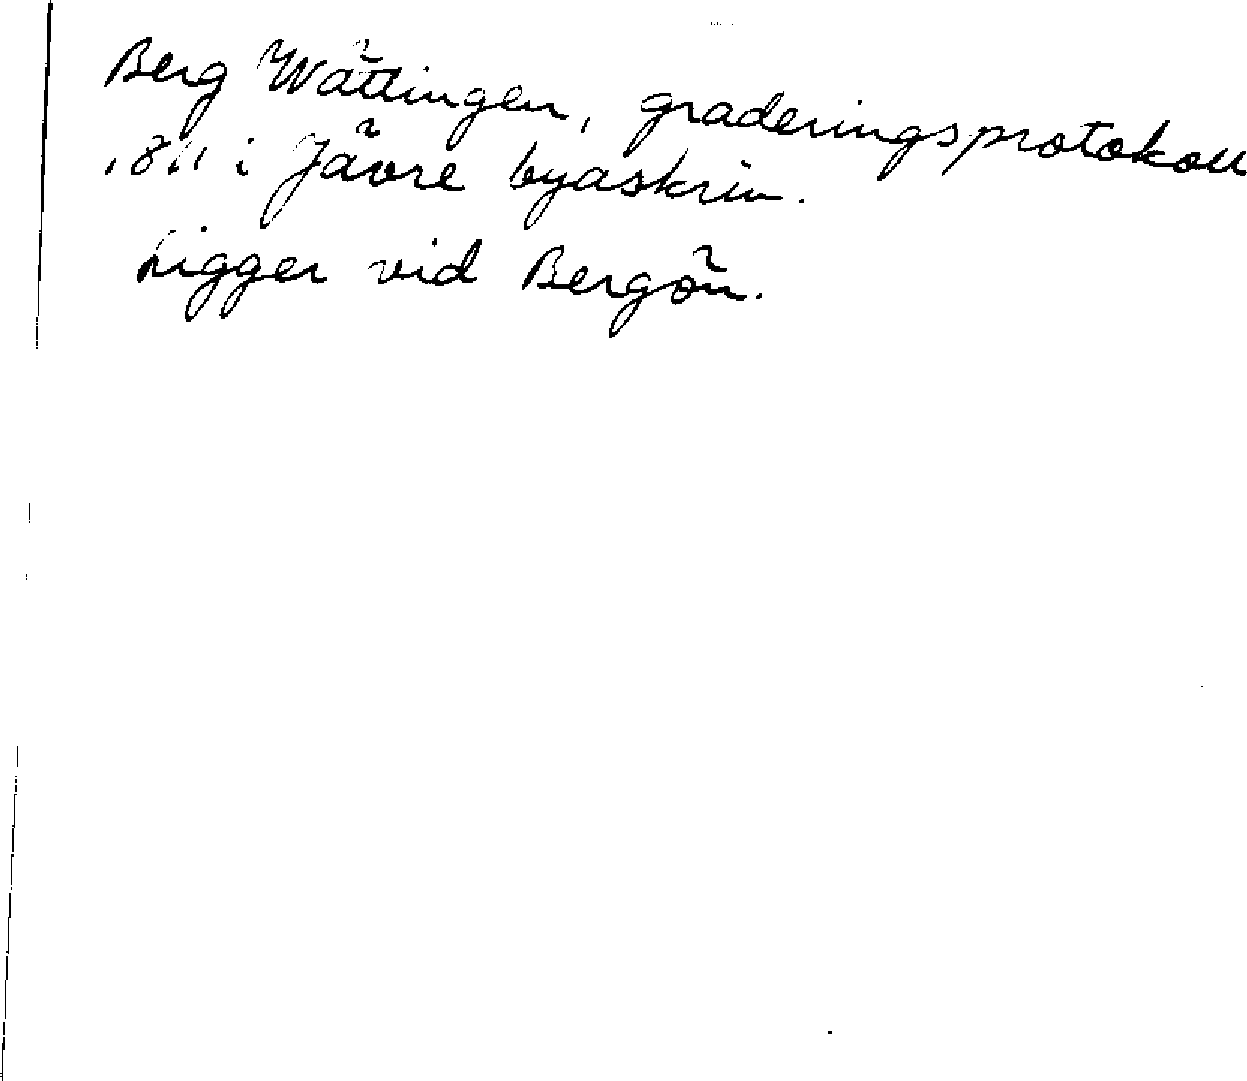 Berg Wättingen, graderingsprotokoll
1811 i Jävre byaskrin.
Ligger vid Bergön.